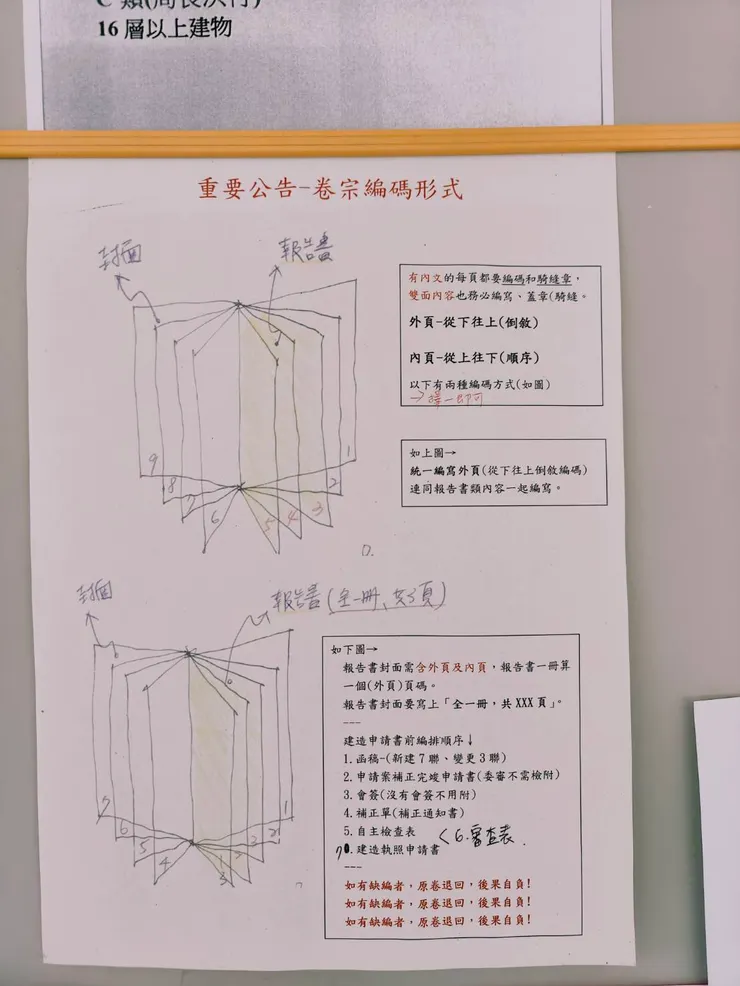 C 類(局長決行)
16 層以上建物
重要公告-卷宗編碼形式
封面
報告書
有內文的每頁都要編碼和騎縫章，
雙面內容也務必編寫、蓋章(騎縫。
外頁-從下往上(倒敘)
內頁-從上往下(順序)
以下有兩種編碼方式(如圖)
→擇一即可
如上圖→
統一編寫外頁(從下往上倒敘編碼)
連同報告書類內容一起編寫。
9
8
7
6
5
4
3
2
1
封面
報告書(全一冊、共3頁)
如下圖→
報告書封面需含外頁及內頁，報告書一冊算
一個(外頁)頁碼。
報告書封面要寫上「全一冊，共 XXX 頁」。
---
建造申請書前編排順序↓
1.函稿-(新建 7 聯、變更 3 聯)
2.申請案補正完竣申請書(委審不需檢附)
3.會簽(沒有會簽不用附)
4.補正單(補正通知書)
5.自主檢查表
<6.審查表.
7.建造執照申請書
---
如有缺編者，原卷退回，後果自負!
如有缺編者，原卷退回，後果自負!
如有缺編者，原卷退回，後果自負!
7
6
5
4
3
1
2
3
2
1